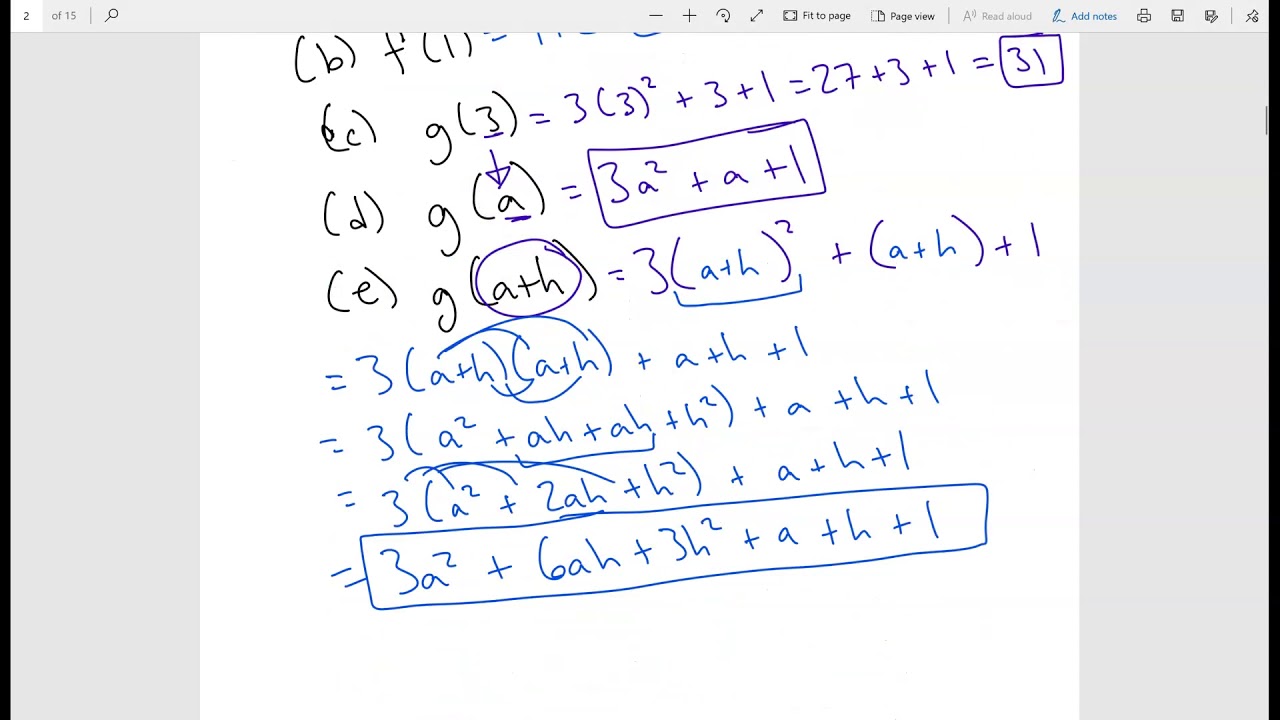 2 of 15 Fit to page Page view Read aloud Add notes
(b) f(1) =
(c) g(3) = 3(3)² + 3 + 1 = 27 + 3 + 1 = 31
(d) g(a) = 3a² + a + 1
(e) g(a+h) = 3(a+h)² + (a+h) + 1
= 3(a+h)(a+h) + a+h + 1
= 3(a² + ah + ah + h²) + a + h + 1
= 3(a² + 2ah + h²) + a + h + 1
= 3a² + 6ah + 3h² + a + h + 1